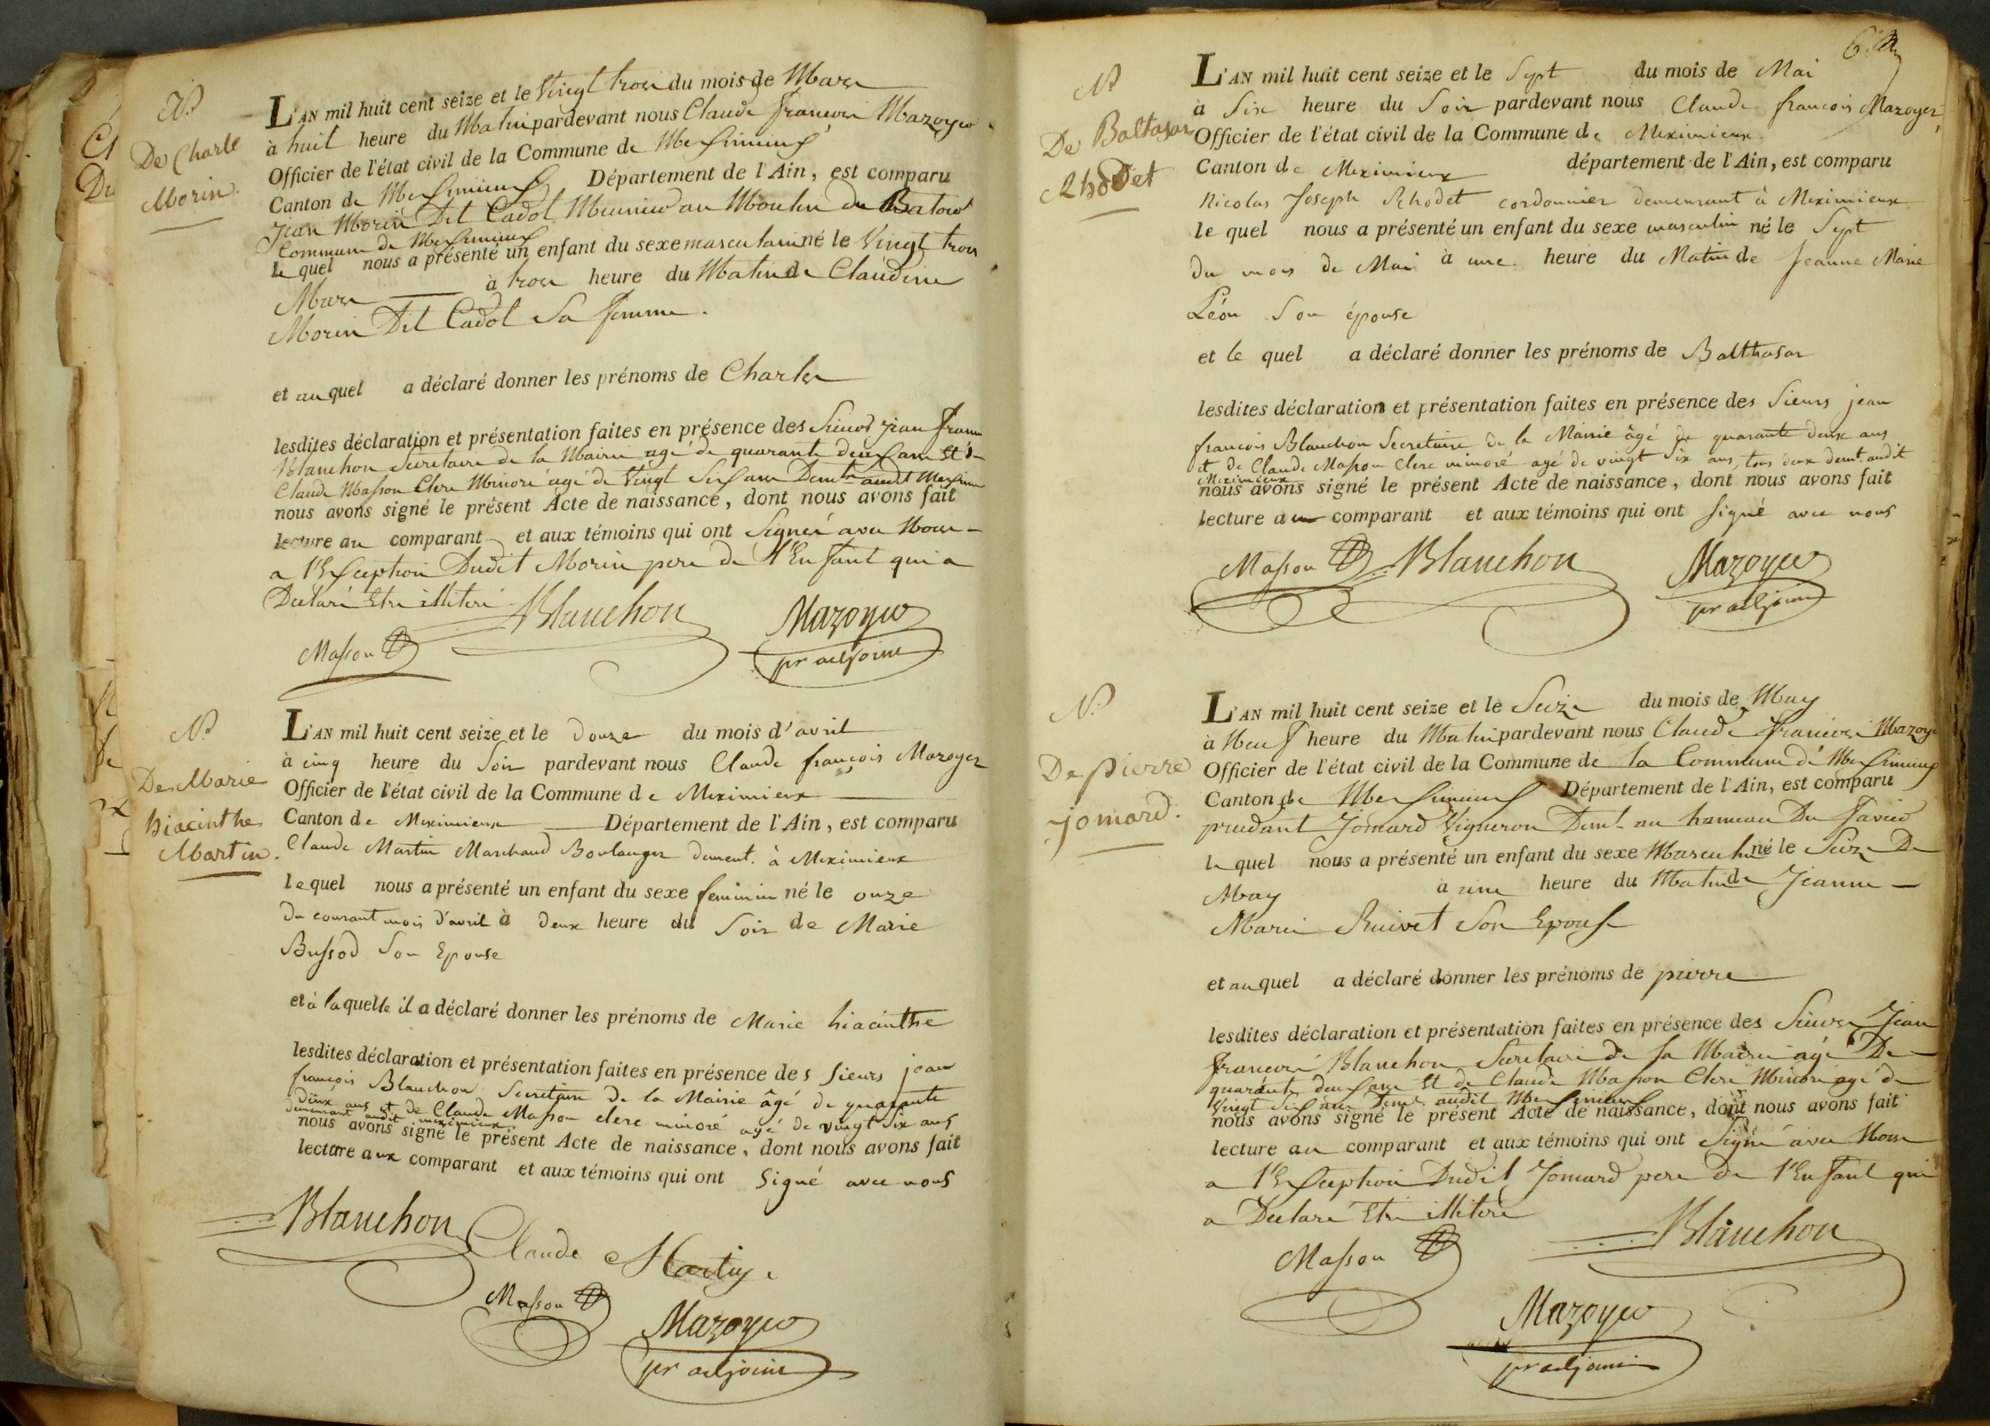 N.°
De Charle
Morin.
L'AN mil huit cent seize et le Vingt trois du mois de Mars
à huit heure du Matin pardevant nous Claude françois Mazoyer
Officier de l'état civil de la Commune de Meximieux
Canton de Meximieux Département de l'Ain, est comparu
Jean Morin Dit Cadol Meunier au Moulin du Batoir
Commune de Meximieux
le quel nous a présenté un enfant du sexe masculain né le Vingt trois
Mars à trois heure du Matin de Claudine
Morin Dit Cadol Sa femme.
et au quel a déclaré donner les prénoms de Charles
lesdites déclaration et présentation faites en présence des Sieurs Jean franc
Blanchon Secretaire de la Mairie agé de quarante deux ans et d
Claude Masson Clerc Minoré agé de Vingt Six ans Demt audit Meximieux
nous avons signé le présent Acte de naissance, dont nous avons fait
lecture au comparant et aux témoins qui ont Signé avec Nous
a l'Exception Dudit Morin pere de l'Enfant qui a
Declaré Etre illiteré
Blanchon Mazoyer
Masson pr adjoint
N.°
De Marie
hiacinthe
Martin.
L'AN mil huit cent seize et le douze du mois d'avril
à cinq heure du Soir pardevant nous Claude françois Mazoyer
Officier de l'état civil de la Commune de Meximieux
Canton de Meximieux Département de l'Ain, est comparu
Claude Martin Marchand Boulanger demeut. à Meximieux
lequel nous a présenté un enfant du sexe feminin né le onze
du courant mois d'avril à deux heure du Soir de Marie
Bussod Son Epouse
et à laquelle il a déclaré donner les prénoms de Marie hiacinthe
lesdites déclaration et présentation faites en présence des Sieurs jean
françois Blanchon Secretaire de la Mairie âgé de quarante
deux ans et de Claude Masson clerc minoré agé de vingt Six ans
demeurant audit meximieux
nous avons signé le présent Acte de naissance, dont nous avons fait
lecture aux comparant et aux témoins qui ont Signé avec nous
Blanchon Claude Martin
Masson Mazoyer
pr adjoint
6.
N.°
De Baltasar
Rhodet
L'AN mil huit cent seize et le Sept du mois de Mai
à Six heure du Soir pardevant nous Claude françois Mazoyer,
Officier de l'état civil de la Commune de Meximieux
Canton de Meximieux département de l'Ain, est comparu
Nicolas Joseph Rhodet cordonnier demeurant à Meximieux
le quel nous a présenté un enfant du sexe masculin né le Sept
du mois de Mai à une heure du Matin de Jeanne Marie
Léon Son épouse
et le quel a déclaré donner les prénoms de Balthasar
lesdites déclaration et présentation faites en présence des Sieurs jean
françois Blanchon Secretaire de la Mairie âgé de quarante deux ans
et de Claude Masson Clerc minoré agé de vingt Six ans, tous deux demt audit
Meximieux
nous avons signé le présent Acte de naissance, dont nous avons fait
lecture au comparant et aux témoins qui ont signé avec nous
Masson Blanchon Mazoyer
pr adjoint
N.°
De pierre
jomard.
L'AN mil huit cent seize et le Seize du mois de May
à Neuf heure du Matin pardevant nous Claude françois Mazoyer
Officier de l'état civil de la Commune de la Commune de Meximieux
Canton de Meximieux Département de l'Ain, est comparu
prudant Jomard Vigneron Demt au hameau Du
le quel nous a présenté un enfant du sexe Masculin né le Seize De
May à une heure du Matin de Jeanne
Marie Ruivet Son Epouse
et au quel a déclaré donner les prénoms de pierre
lesdites déclaration et présentation faites en présence des Sieurs Jean
françois Blanchon Secretaire de la Mairie agé De
quarante deux ans et de Claude Masson Clerc Minoré agé de
Vingt Six ans Demt audit Meximieux
nous avons signé le présent Acte de naissance, dont nous avons fait
lecture au comparant et aux témoins qui ont Signé avec Nous
a l'Exception Dudit Jomard pere de l'Enfant qui
a Declaré Etre illiteré
Masson Blanchon
Mazoyer
pr adjoint